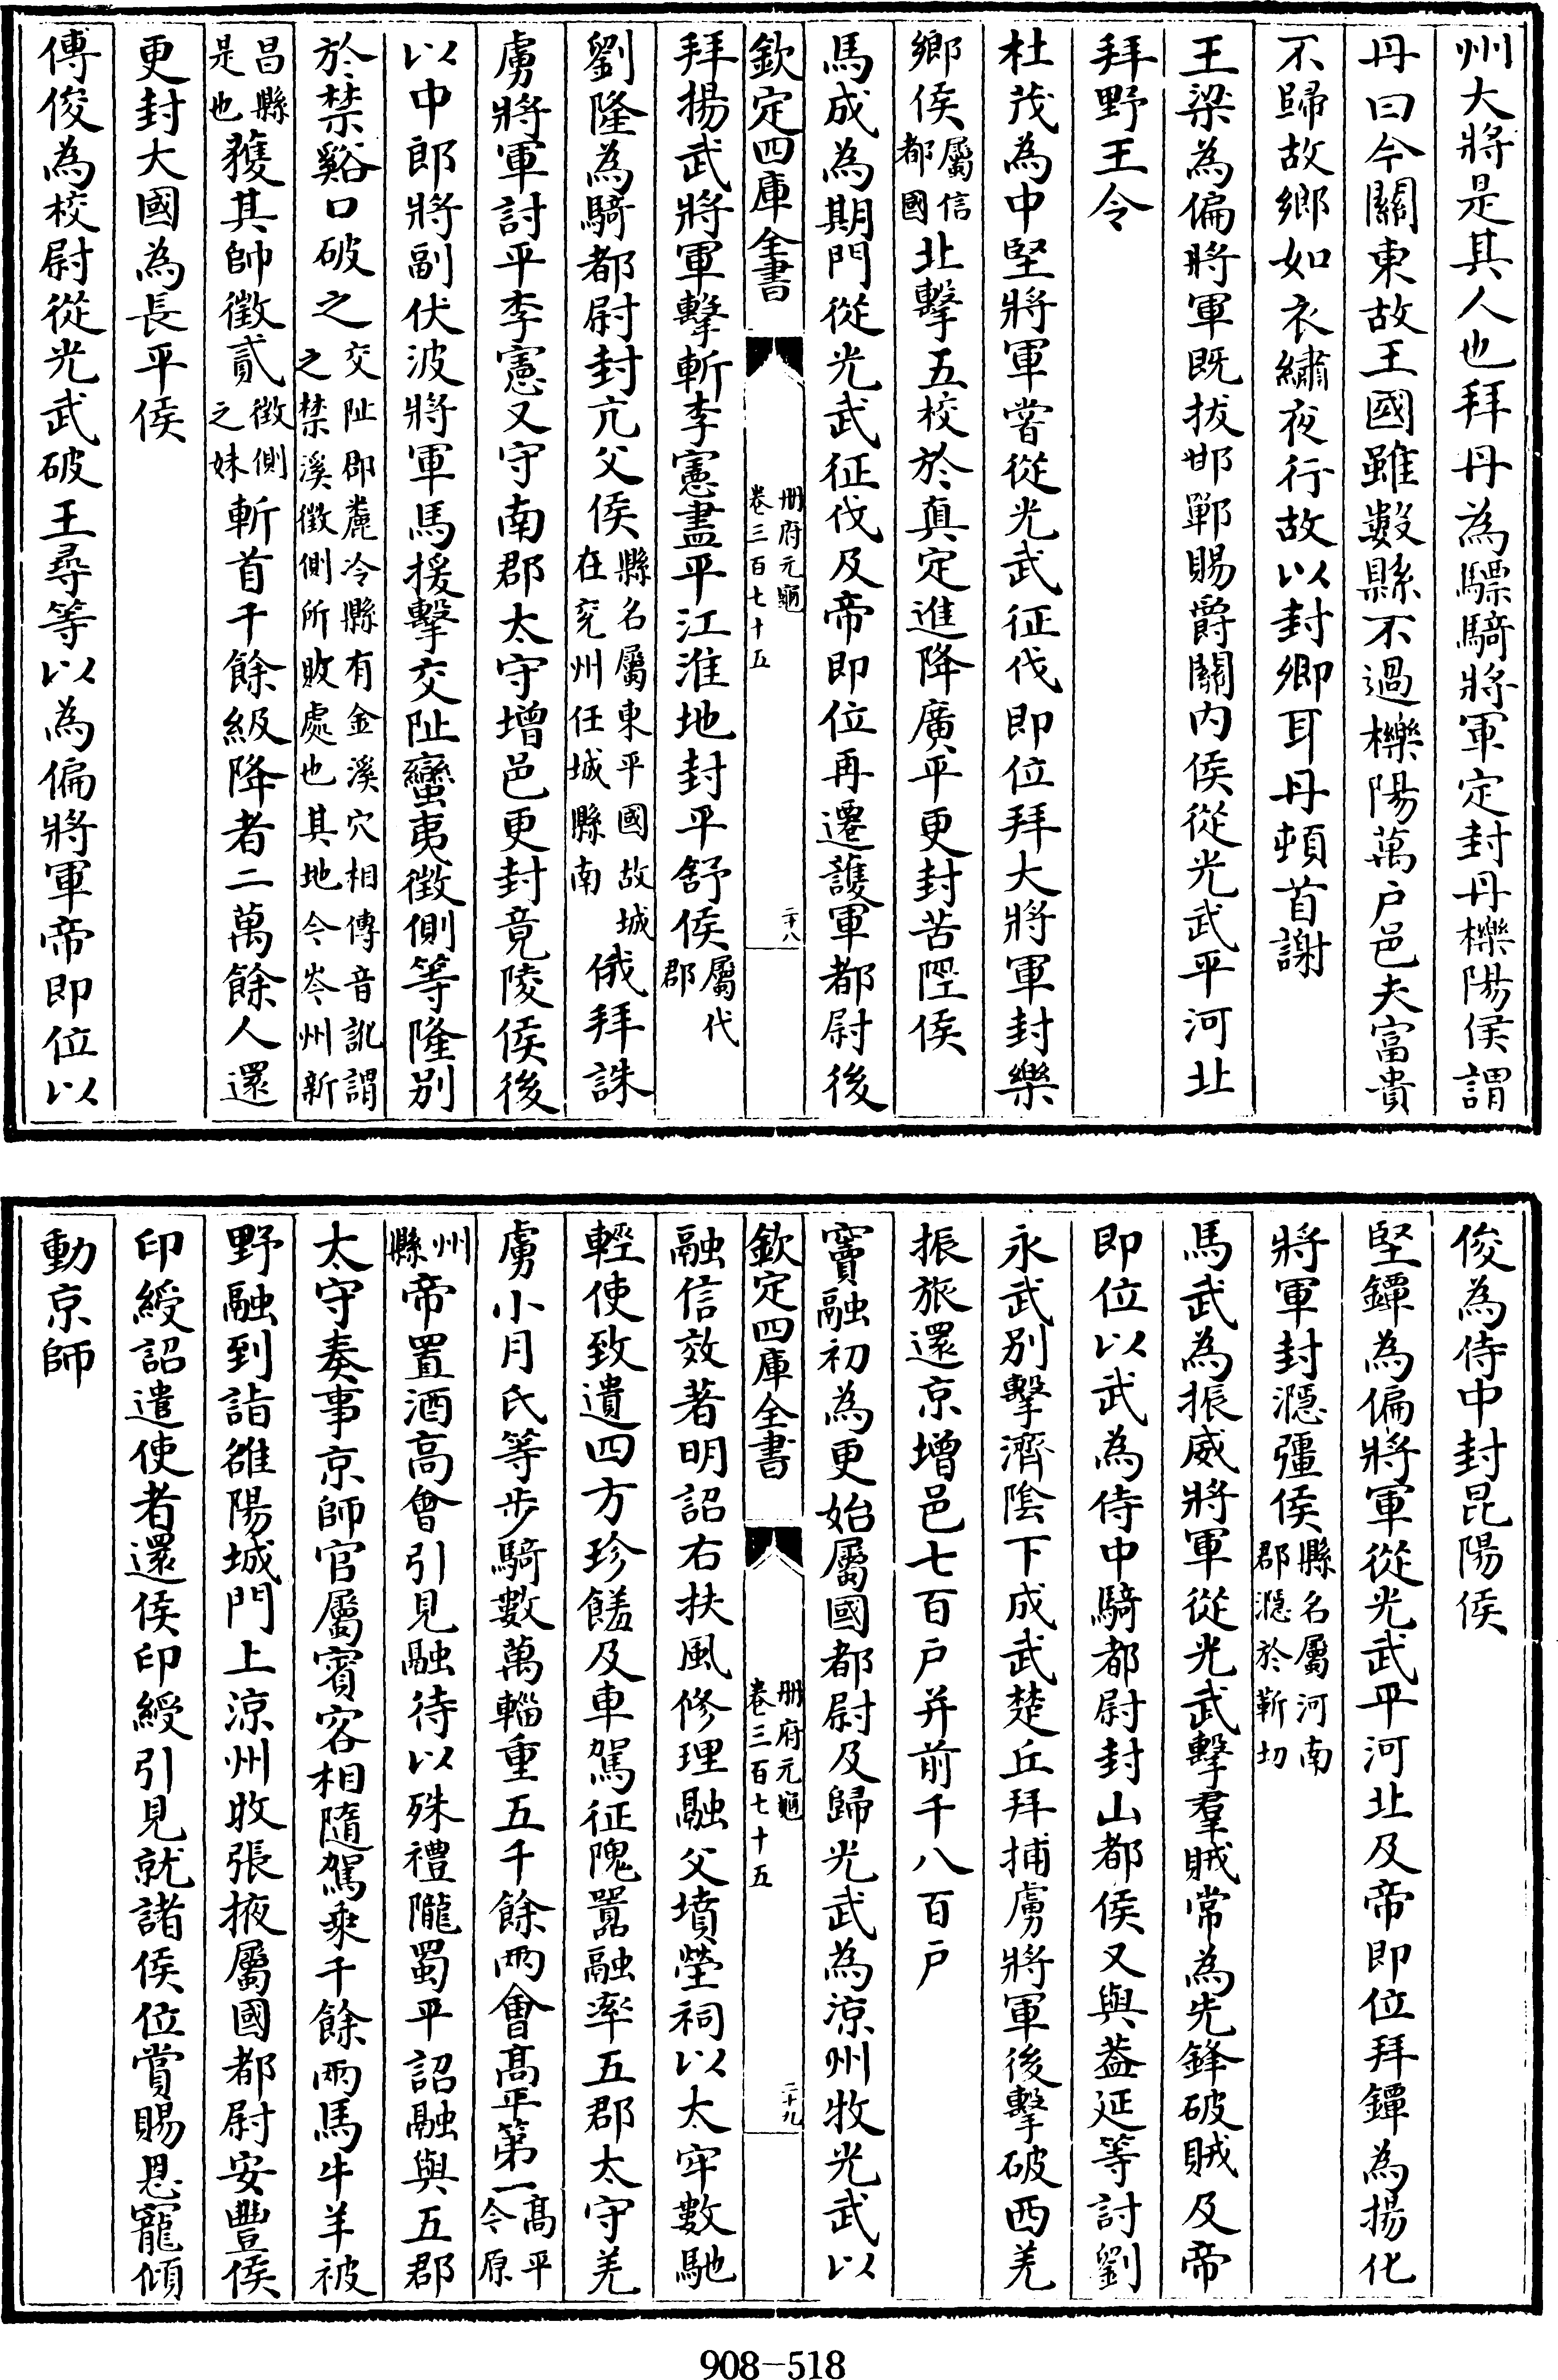 州大將是其人也拜丹為驃騎將軍定封丹櫟陽侯謂
丹曰今關東故王國雖數縣不過櫟陽萬户邑夫富貴
不歸故鄉如衣繡夜行故以封卿耳丹頓首謝
王梁為偏將軍既拔邯鄲賜爵關内侯從光武平河北
拜野王令
杜茂為中堅將軍嘗從光武征伐即位拜大將軍封樂
鄉侯屬信都國北擊五校於真定進降廣平更封苦陘侯
馬成為期門從光武征伐及帝即位再遷護軍都尉後
欽定四庫全書
册府元龜
卷三百七十五
二十八
拜揚武將軍擊斬李憲盡平江淮地封平舒侯屬代郡
劉隆為騎都尉封亢父侯縣名屬東平國故城在兖州任城縣南俄拜誅
虜將軍討平李憲又守南郡太守增邑更封竟陵侯後
以中郎將副伏波將軍馬援擊交阯蠻夷徵側等隆别
於禁谿口破之交阯郡麊冷縣有金溪穴相傳音訛謂之禁溪徵側所敗處也其地今岑州新
昌縣是也獲其帥徵貳徵側之妹斬首千餘級降者二萬餘人還
更封大國為長平侯
傅俊為校尉從光武破王尋等以為偏將軍帝即位以
俊為侍中封昆陽侯
堅鐔為偏將軍從光武平河北及帝即位拜鐔為揚化
將軍封㶏彊侯縣名屬河南郡㶏於靳切
馬武為振威將軍從光武擊羣賊常為先鋒破賊及帝
即位以武為侍中騎都尉封山都侯又與葢延等討劉
永武别擊濟陰下成武楚丘拜捕虜將軍後擊破西羌
振旅還京增邑七百户并前千八百户
竇融初為更始屬國都尉及歸光武為涼州牧光武以
欽定四庫全書
册府元龜
卷三百七十五
二十九
融信效著明詔右扶風修理融父墳塋祠以太牢數馳
輕使致遺四方珍饈及車駕征隗囂融率五郡太守羌
虜小月氏等步騎數萬輜重五千餘兩會髙平第一髙平今原
州縣帝置酒高會引見融待以殊禮隴蜀平詔融與五郡
太守奏事京師官屬賓客相隨駕乘千餘兩馬牛羊被
野融到詣雒陽城門上涼州牧張掖屬國都尉安豐侯
印綬詔遣使者還侯印綬引見就諸侯位賞賜恩寵傾
動京師
908－518